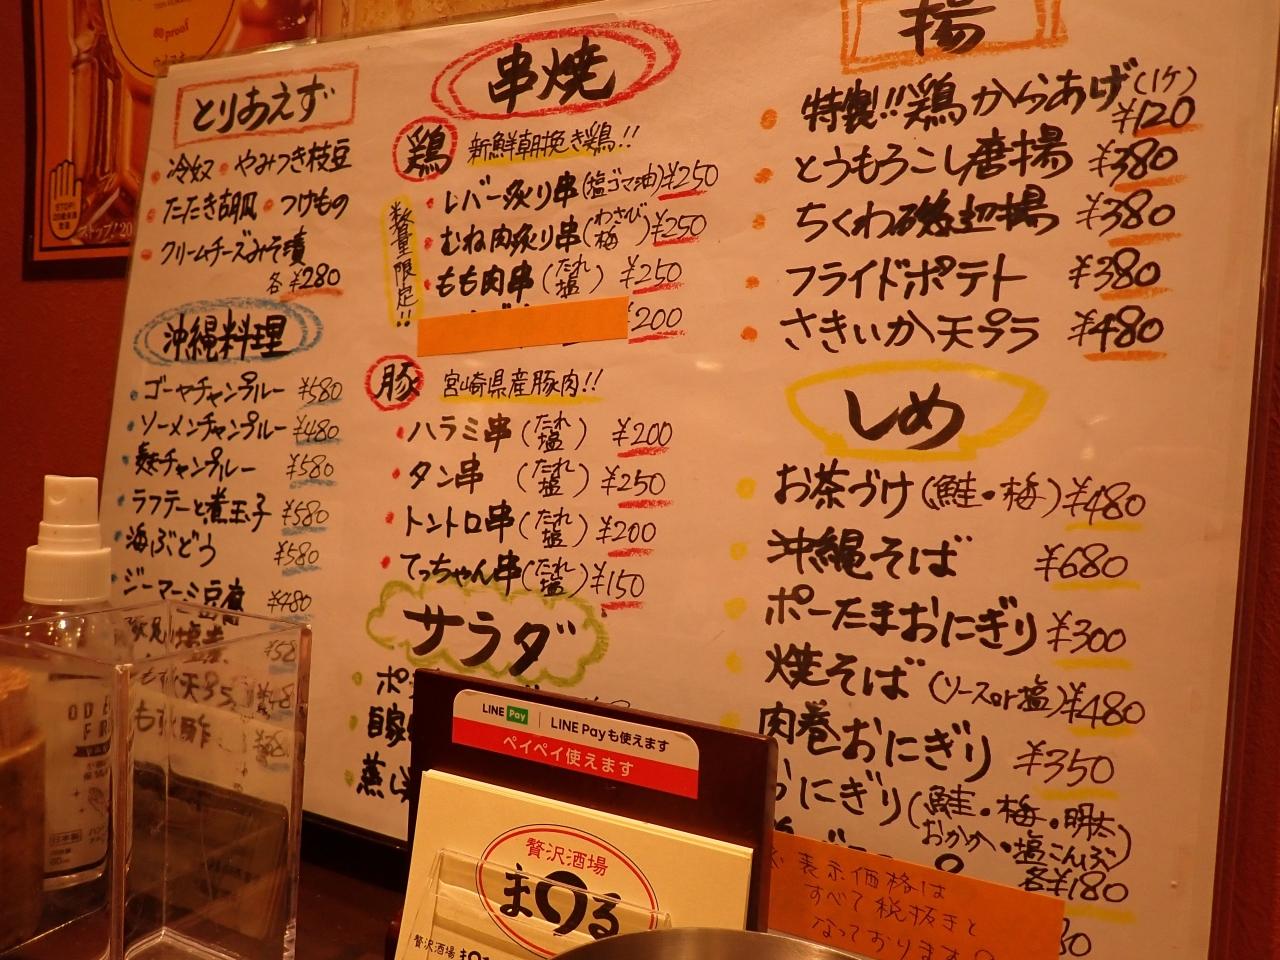 80 proof
STOP!
とりあえず
・冷奴 ・やみつき枝豆
・たたき胡瓜 ・つけもの
・クリームチーズみそ漬
各¥280
沖縄料理
・ゴーヤチャンプルー ¥580
・ソーメンチャンプルー ¥480
・麩チャンプルー ¥580
・ラフテーと煮玉子 ¥580
・海ぶどう ¥580
・ジーマーミ豆腐 ¥480
串焼
鶏 新鮮朝挽き鶏!!
数量限定!!
・レバー炙り串(塩ゴマ油)¥250
・むね肉炙り串(わさび 梅)¥250
・もも肉串(たれ 塩) ¥250
¥200
豚 宮崎県産豚肉!!
・ハラミ串(たれ 塩) ¥200
・タン串 (たれ 塩) ¥250
・トントロ串(たれ 塩) ¥200
・てっちゃん串(たれ 塩)¥150
サラダ
揚
・特製!!鶏からあげ(1ケ) ¥120
・とうもろこし唐揚 ¥380
・ちくわ磯辺揚 ¥380
・フライドポテト ¥380
・さきいか天プラ ¥480
しめ
・お茶づけ(鮭・梅)¥480
・沖縄そば ¥680
・ポーたまおにぎり ¥300
・焼そば(ソースor塩)¥480
肉巻おにぎり ¥350
おにぎり(鮭・梅・明太
おかか・塩こんぶ)
各¥180
表示価格は
すべて税抜きと
なっております。
LINE Pay | LINE Payも使えます
ペイペイ使えます
贅沢酒場
まる
贅沢酒場